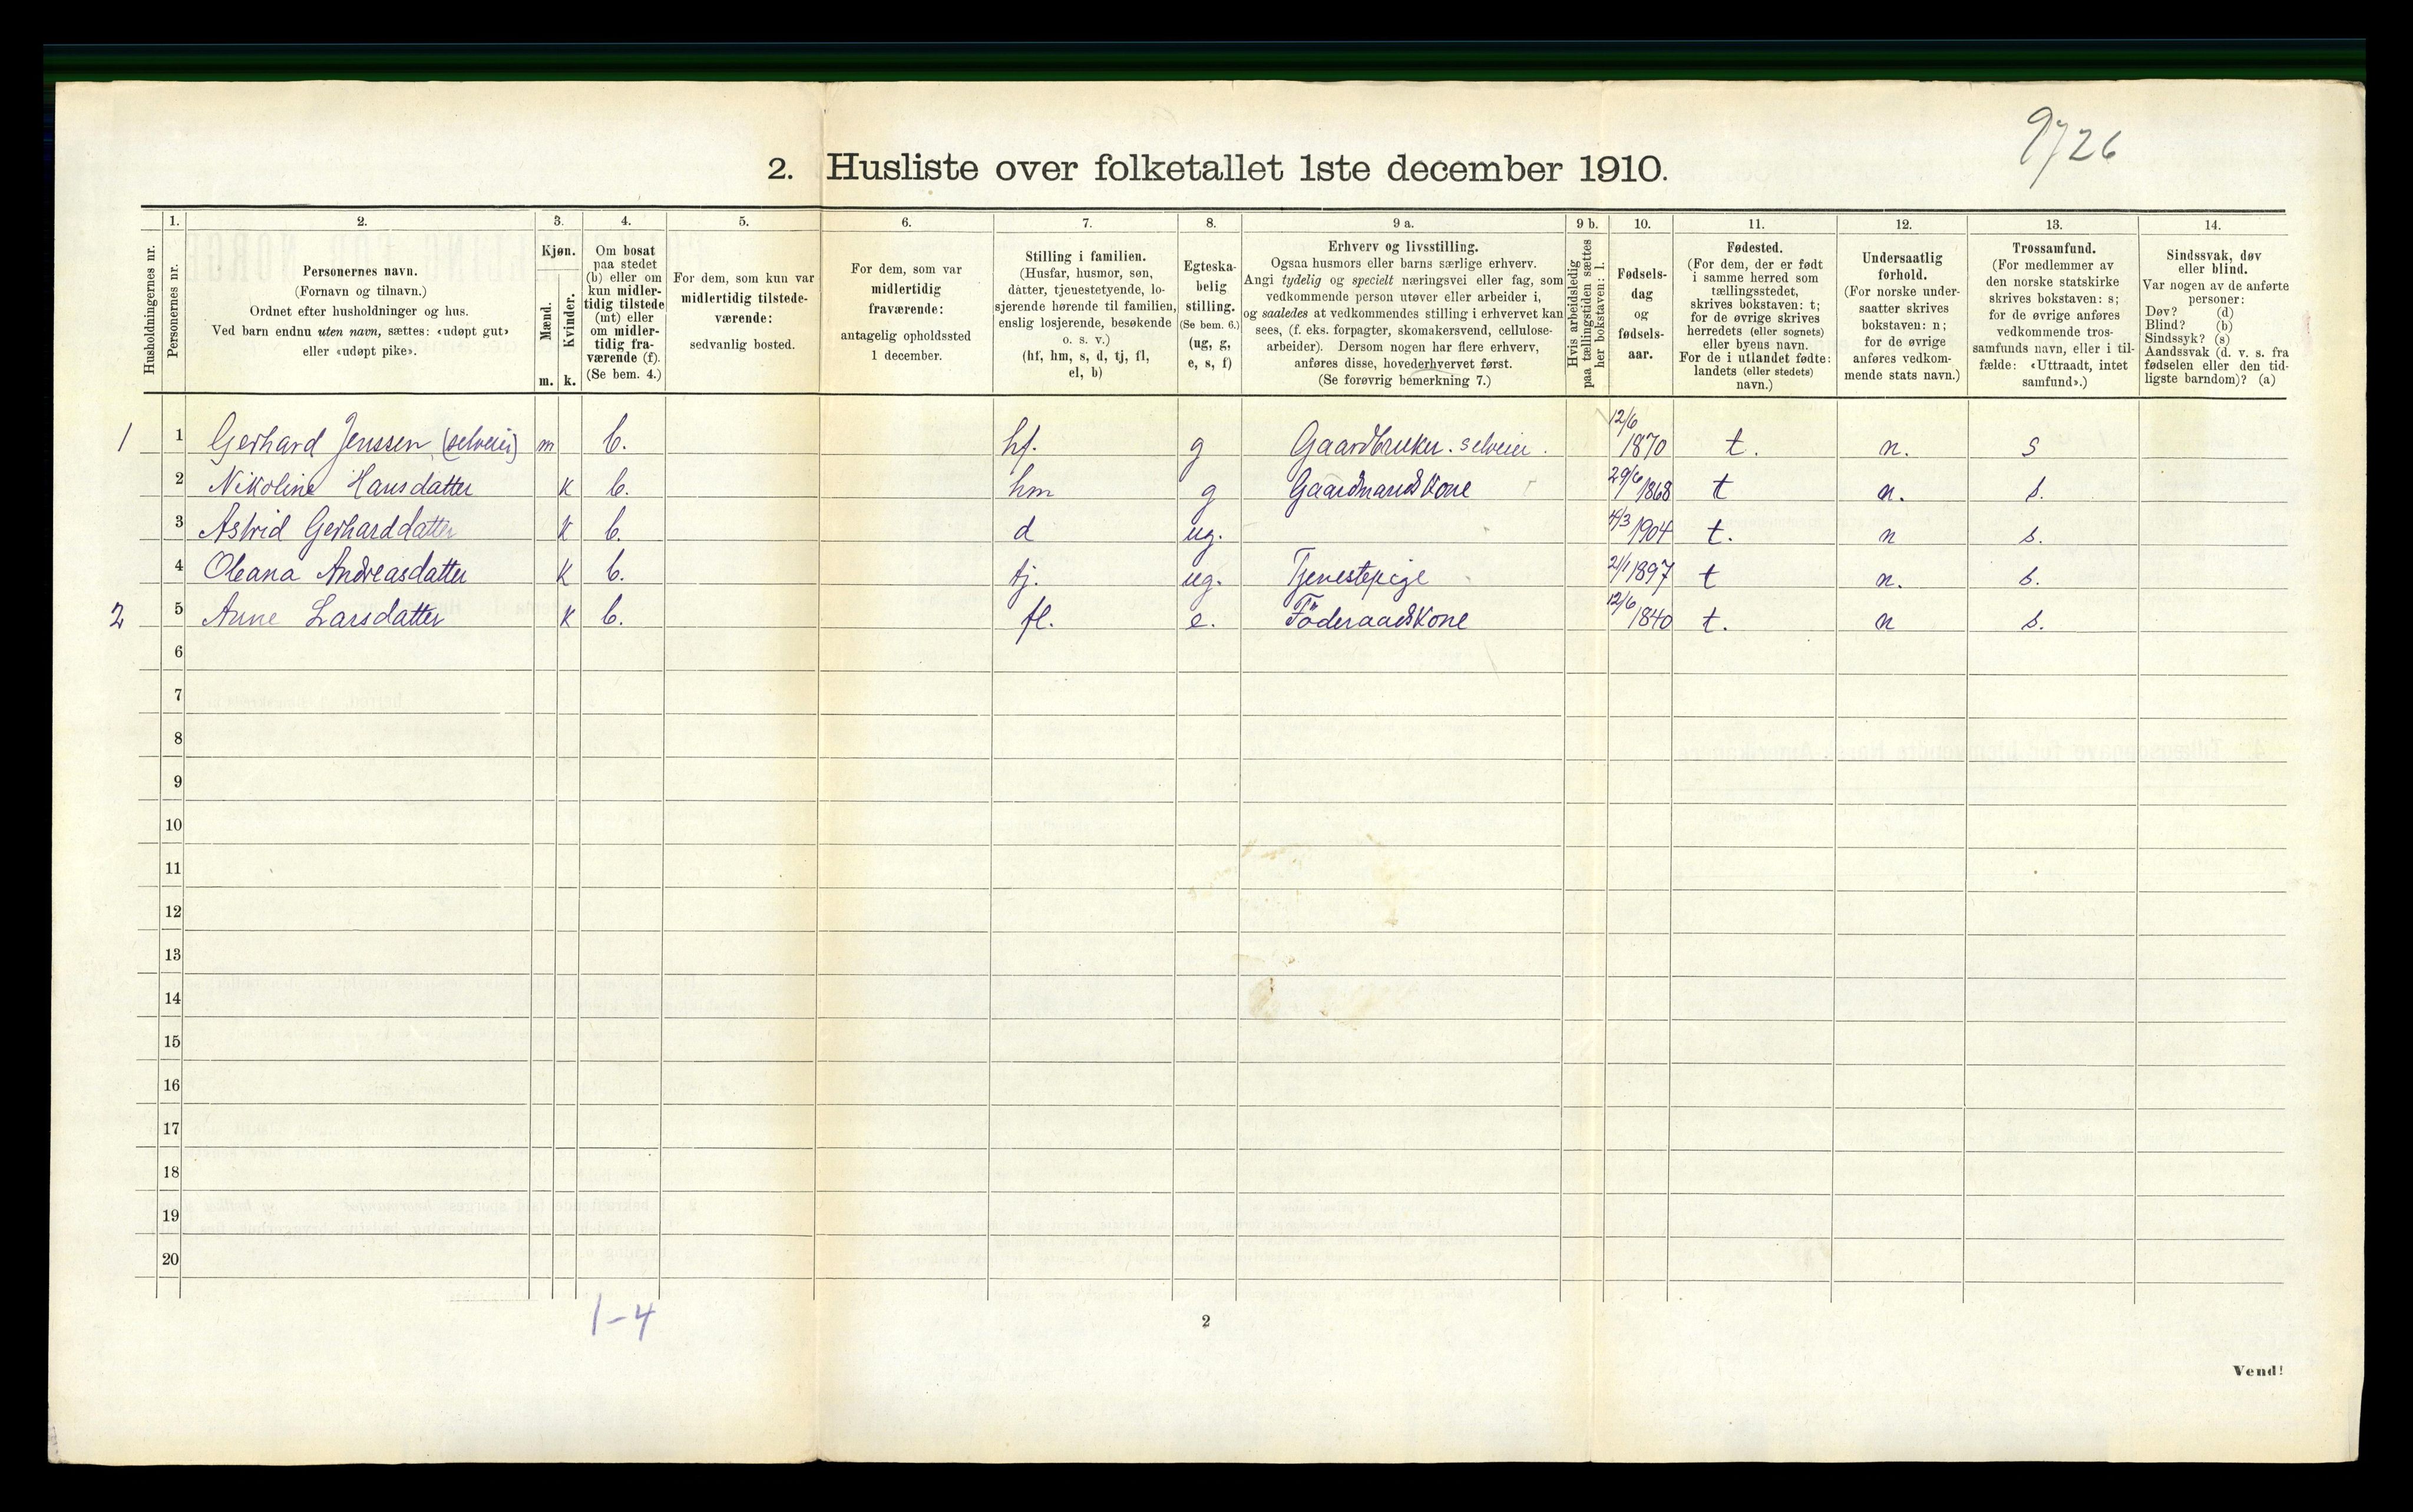 9726
2. Husliste over folketallet 1ste december 1910.
Husholdningernes nr.
1.
Personernes nr.
2.
Personernes navn.
(Fornavn og tilnavn.)
Ordnet efter husholdninger og hus.
Ved barn endnu uten navn, sættes: «udøpt gut»
eller «udøpt pike».
3.
Kjøn.
Mænd.
Kvinder.
m. k.
4.
Om bosat
paa stedet
(b) eller om
kun midler-
tidig tilstede
(mt) eller
om midler-
tidig fra-
værende (f).
(Se bem. 4.)
5.
For dem, som kun var
midlertidig tilstede-
værende:
sedvanlig bosted.
6.
For dem, som var
midlertidig
fraværende:
antagelig opholdssted
1 december.
7.
Stilling i familien.
(Husfar, husmor, søn,
datter, tjenestetyende, lo-
sjerende hørende til familien,
enslig losjerende, besøkende
o. s. v.)
(hf, hm, s, d, tj, fl,
el, b)
8.
Egteska-
belig
stilling.
(Se bem. 6.)
(ug, g,
e, s, f)
9 a.
Erhverv og livsstilling.
Ogsaa husmors eller barns særlige erhverv.
Angi tydelig og specielt næringsvei eller fag, som
vedkommende person utøver eller arbeider i,
og saaledes at vedkommendes stilling i erhvervet kan
sees, (f. eks. forpagter, skomakersvend, cellulose-
arbeider). Dersom nogen har flere erhverv,
anføres disse, hovederhvervet først.
(Se forøvrig bemerkning 7.)
9 b.
Hvis arbeidsledig
paa tællingstiden sættes
her bokstaven: l.
10.
Fødsels-
dag
og
fødsels-
aar.
11.
Fødested.
(For dem, der er født
i samme herred som
tællingsstedet,
skrives bokstaven: t;
for de øvrige skrives
herredets (eller sognets)
eller byens navn.
For de i utlandet fødte:
landets (eller stedets)
navn.)
12.
Undersaatlig
forhold.
(For norske under-
saatter skrives
bokstaven: n;
for de øvrige
anføres vedkom-
mende stats navn.)
13.
Trossamfund.
(For medlemmer av
den norske statskirke
skrives bokstaven: s;
for de øvrige anføres
vedkommende tros-
samfunds navn, eller i til-
fælde: «Uttraadt, intet
samfund».)
14.
Sindssvak, døv
eller blind.
Var nogen av de anførte
personer:
Døv? (d)
Blind? (b)
Sindssyk? (s)
Aandssvak (d. v. s. fra
fødselen eller den tid-
ligste barndom)? (a)
1 1 Gerhard Jenssen (selveier) m b. hf. g Gaardbruker. selveier. 12/6 1870 t. n. s
2 Nikoline Hansdatter k b. hm g Gaardmandskone 29/6 1868 t n. s.
3 Astrid Gerharddatter k b. d ug. 4/3 1904 t. n s.
4 Oleana Andreasdatter k b. tj. ug. Tjenestepige 21/1 1897 t n. s.
2 5 Anne Larsdatter k b. fl. e. Föderaadskone 12/6 1840 t. n s.
6
7
8
9
10
11
12
13
14
15
16
17
18
19
20
1-4
2
Vend!